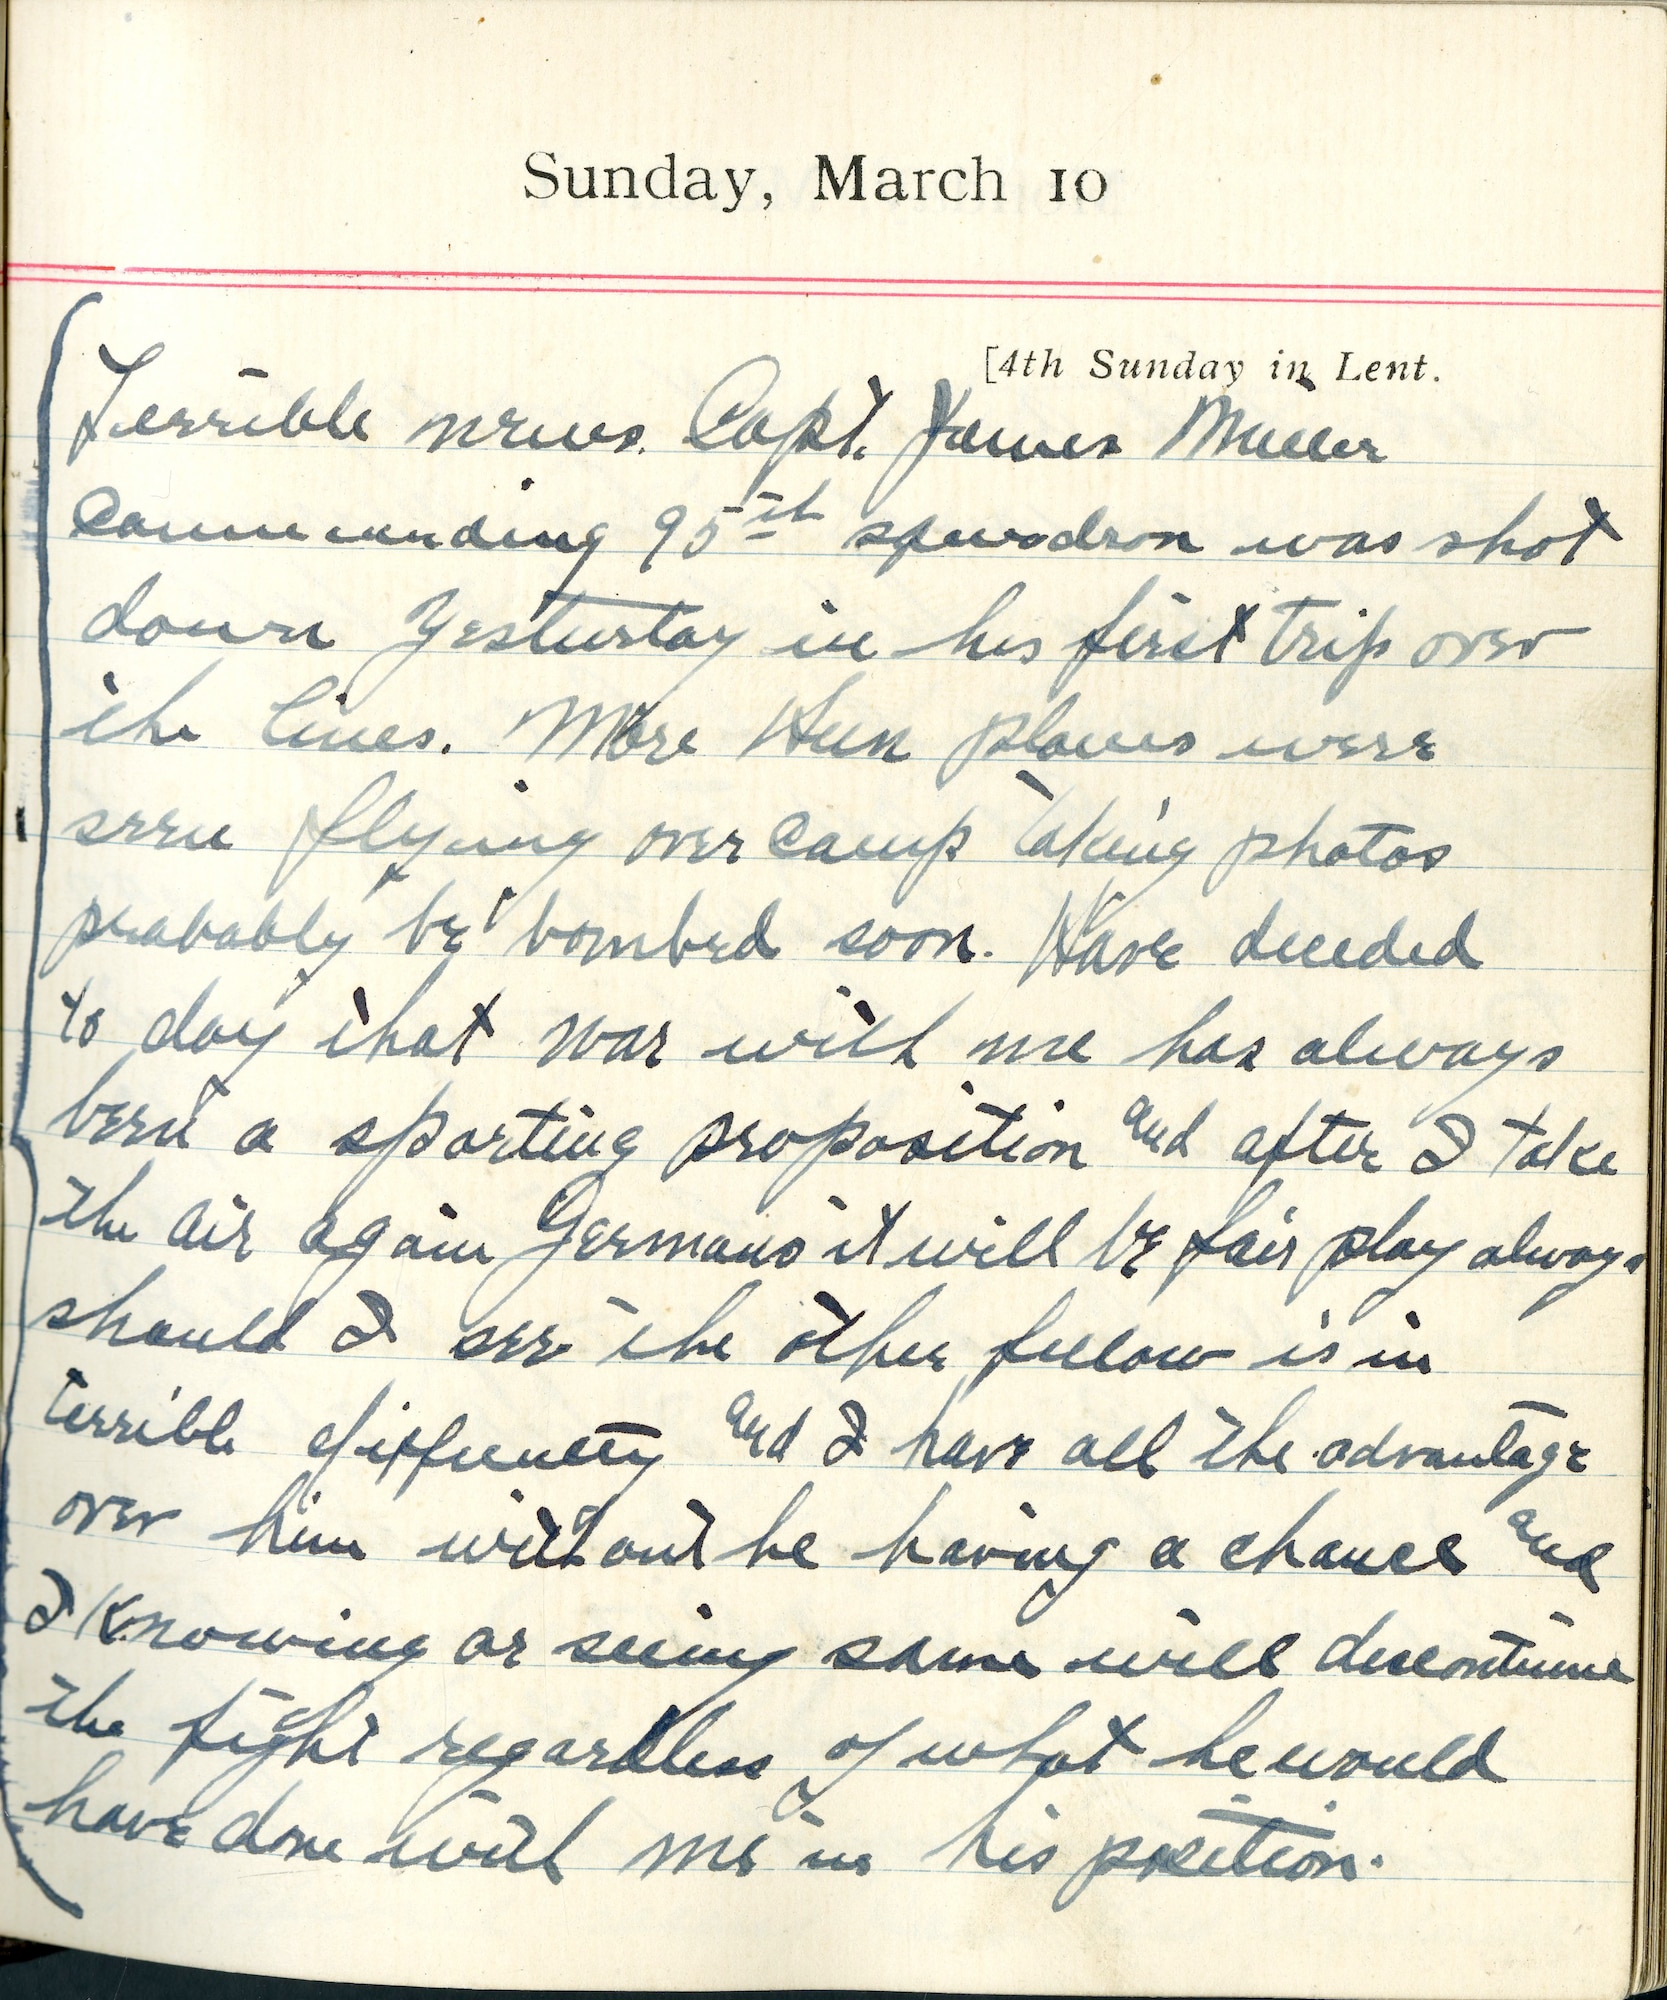 Sunday, March 10
[4th Sunday in Lent.
Terrible news. Capt. James Miller
Commanding 95th squadron was shot
down Yesturtay in his first trip over
the lines. More Hun planes were
seen flying over camp taking photos
probably be bombed soon. Have decided
to day that war with me has always
been a sporting proposition and after I take
the air again Germans it will be fair play always
should I see the other fellow is in
terrible difficulty and I have all the advantage
over him without he having a chance and
I knowing or seeing same will discontinue
the fight regardless of what he would
have done with me in his position.